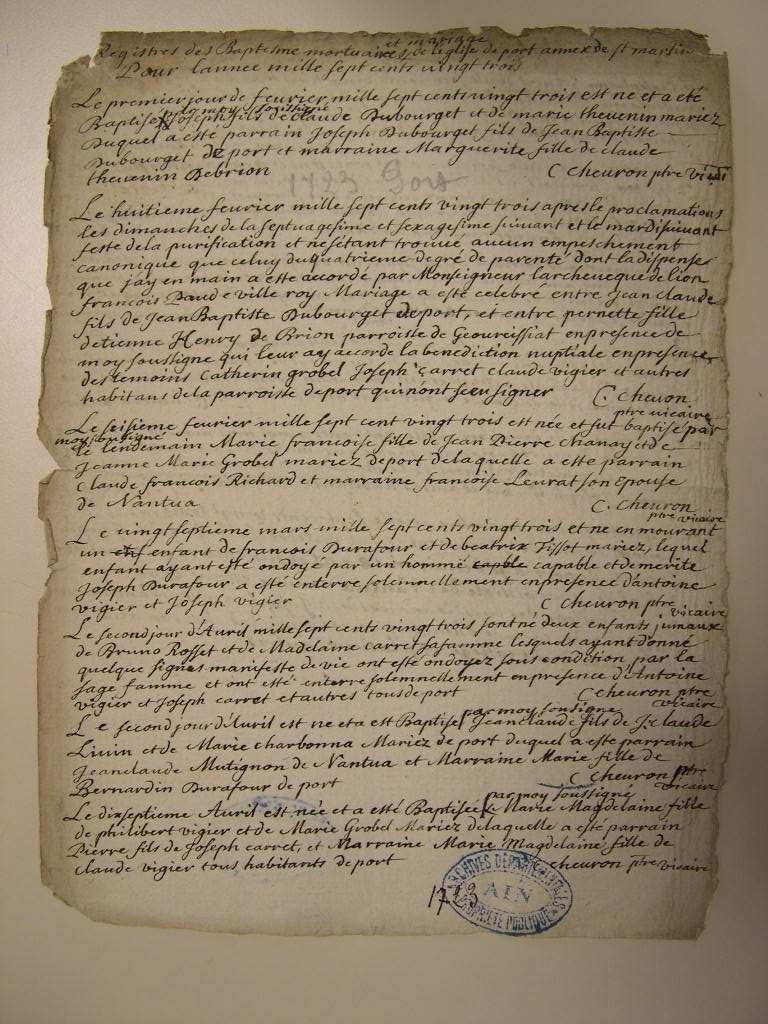 Registres des Baptesme mortuaires et mariage de leglise de port annex de st martin
Pour lannee mille sept cents vingt trois
Le premier jour de feurier mille sept cents vingt trois est ne et a eté
Baptise par moy soussigné Joseph fils de claude Dubourget et de marie theuenin mariez
Duquel a esté parrain Joseph Dubourget fils de Jean Baptiste
Dubourget de port et marraine Marguerite fille de claude
theuenin Debrion C cheuron ptre vicai
1723 Port
Le huitieme feurier mille sept cents vingt trois apres le proclamations
les dimanches de la septuagesime et sexagesime suiuant et le mardi suiuant
feste de la purification et ne sétant trouué aucun empeschement
canonique que celuy du quatrieme degré de parenté dont la dispense
que jay en main a esté accordé par Monseigneur larcheueque de lion
francois Paul de ville roy Mariage a esté celebré entre Jean claude
fils de Jean Baptiste Dubourget de port, et entre pernette fille
detienne Henry de Brion parroisse de Geoureissiat en presence de
moy soussigne qui leur ay accorde la benediction nuptiale en presence
des temoins Catherin grobel Joseph Carret claude vigier et autres
habitans de la parroisse de port qui n'ont sceu signer C. cheuron
ptre vicaire
Le seisieme feurier mille sept cent vingt trois est née et fut baptise par
moy soussigne le lendemain Marie francoise fille de Jean Pierre chanay et de
Jeanne Marie Grobel mariez de port de laquelle a esté parrain
Claude francois Richard et marraine francoise Leurat son epouse
de Nantua C. cheuron
ptre vicaire
Le vingt septieme mars mille sept cents vingt trois et ne en mourant
un enf enfant de francois Durafour et de beatrix Tissot mariez, lequel
enfant ayant esté ondoyé par un hommé capble capable et de merite
Joseph Durafour a esté enterre solemnellement en presence d'antoine
vigier et Joseph vigier C cheuron ptre vicaire
Le second jour d'Auril mille sept cents vingt trois sont né deux enfants jumaux
de Bruno Rosset et de Madelaine carret sa famme lesquels ayant donné
quelque signes manifeste de vie ont esté ondoyez sous condition par la
sage famme et ont esté enterre solemnellement en presence d'Antoine
vigier et Joseph carret et autres tous de port C cheuron ptre
vicaire
Le second jour d'Auril est ne et a est Baptise par moy soussigne Jean claude fils de Je claude
Liuin et de Marie charbonna Mariez de port duquel a esté parrain
Jean claude Mutignon de Nantua et Marraine Marie fille de
Bernardin Durafour de port C cheuron ptre
vicaire
Le dixseptieme Auril est née et a esté Baptisée par moy soussigné Marie Magdelaine fille
de philibert vigier et de Marie Grobel Mariez de laquelle a esté parrain
Pierre fils de Joseph carret, et Marraine Marie Magdelaine fille de
claude vigier tous habitants de port C cheuron ptre vicaire
1723
ARCHIVES DÉPARTEMENTALES
AIN
PROPRIÉTÉ PUBLIQUE